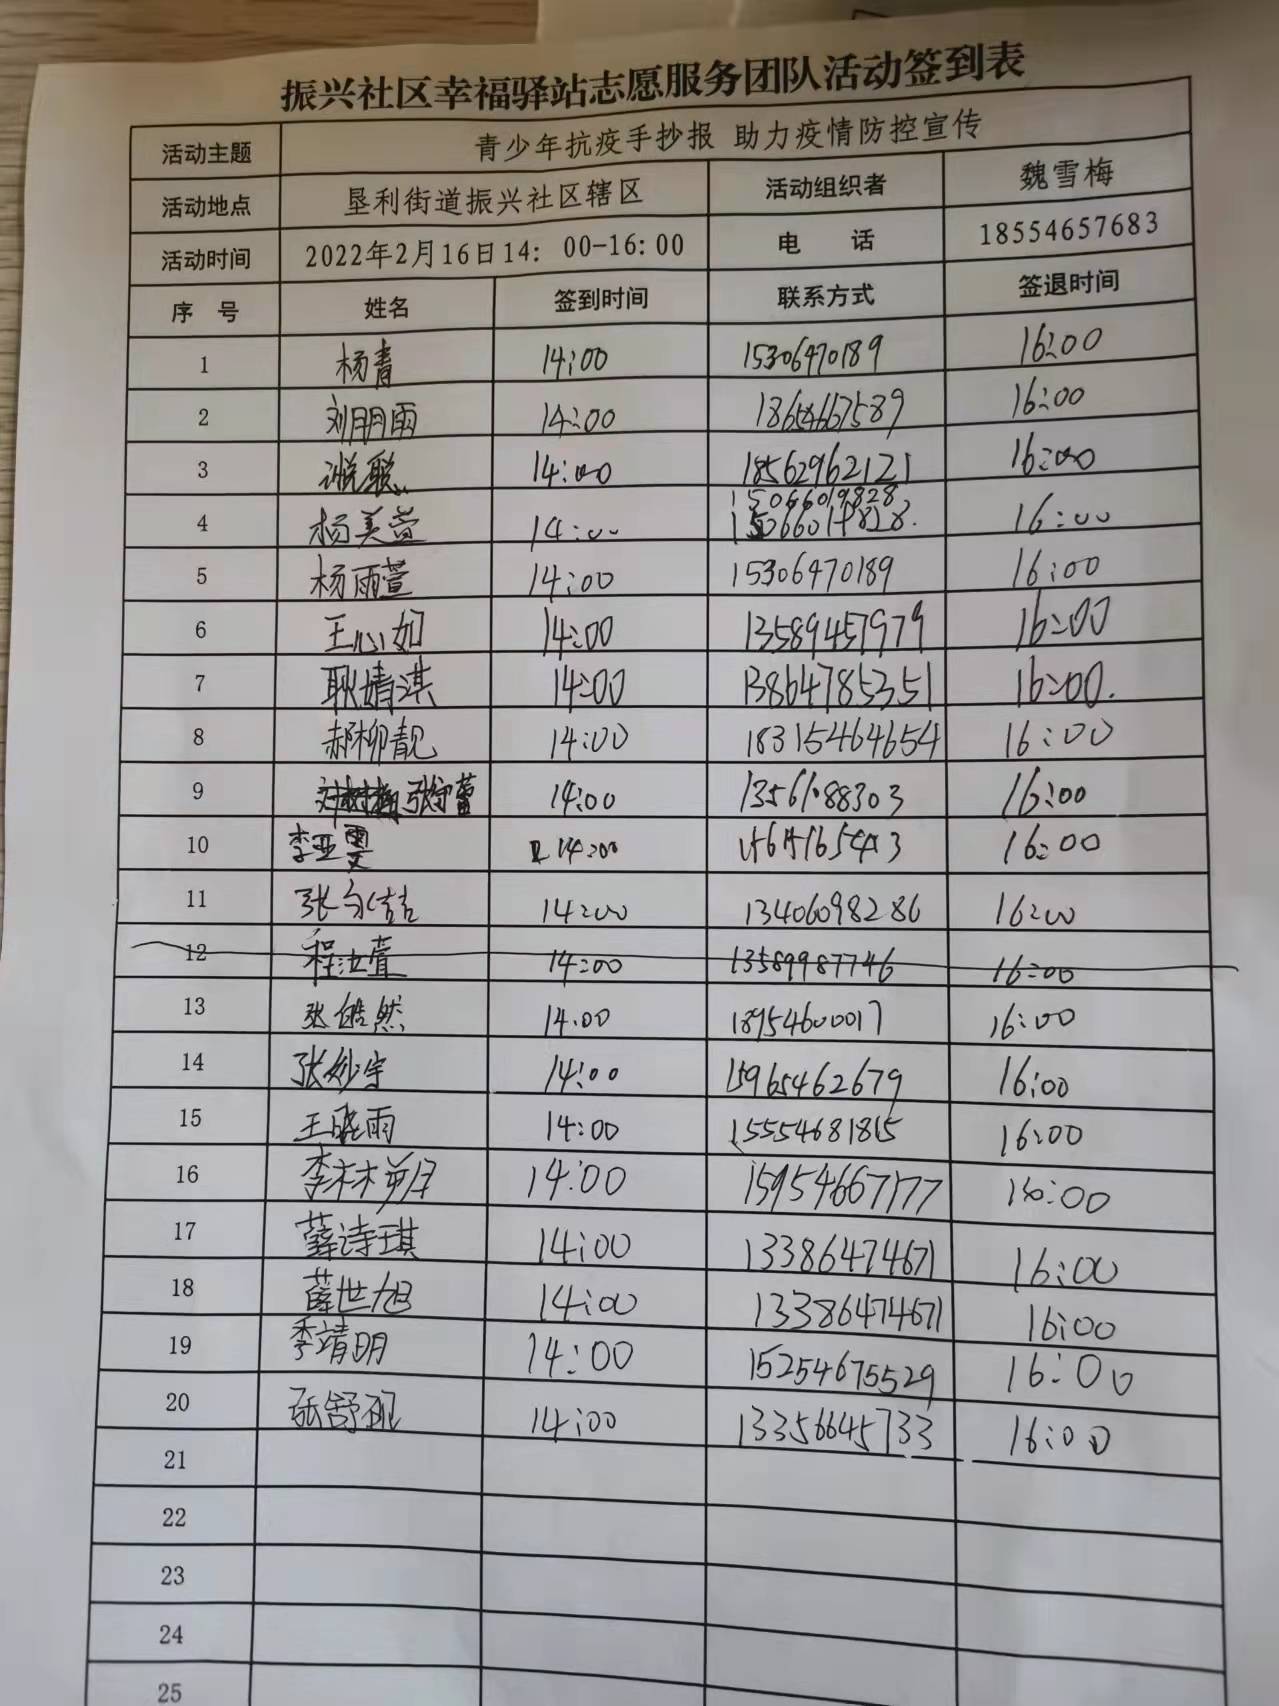 振兴社区幸福驿站志愿服务团队活动签到表
活动主题 青少年抗疫手抄报 助力疫情防控宣传
活动地点 垦利街道振兴社区辖区 活动组织者 魏雪梅
活动时间 2022年2月16日14：00-16：00 电 话 18554657683
序 号 姓名 签到时间 联系方式 签退时间
1 杨青 14:00 15306470189 16:00
2 刘玥雨 14:00 18654667589 16:00
3 14:00 18562962121 16:00
4 杨美萱 14:00 15066019828 16:00
5 杨雨萱 14:00 15306470189 16:00
6 王心如 14:00 13589457979 16:00
7 耿婧淇 14:00 13864785351 16:00.
8 郝柳靓 14:00 18315464654 16:00
9 14:00 13561088303 16:00
10 李亚雯 14:00 16:00
11 张永喆 14:00 13406098286 16:00
12 程汝萱 14:00 13589987746 16:00
13 张皓然 14:00 18954600017 16:00
14 张妙宇 14:00 15965462679 16:00
15 王晓雨 14:00 15554681815 16:00
16 李林蔚 14:00 15954667177 16:00
17 薛诗琪 14:00 13386474671 16:00
18 薛世旭 14:00 13386474671 16:00
19 李靖明 14:00 15254675529 16:00
20 张舒砚 14:00 13356645733 16:00
21
22
23
24
25